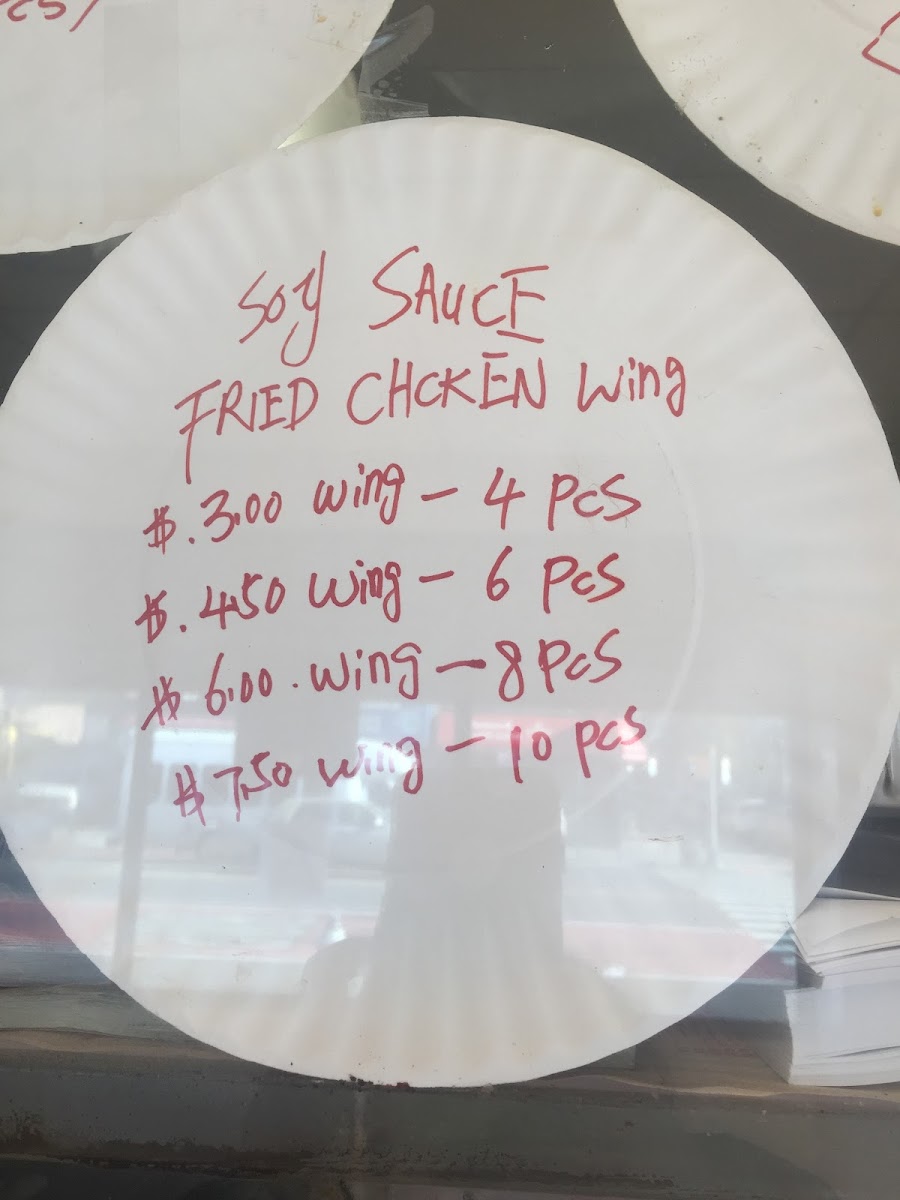 SOY SAUCE
FRIED CHCKEN Wing
$.3.00 wing - 4 PCS
$.4.50 wing - 6 PCS
$ 6.00. wing - 8 PCS
$ 7.50 wing - 10 pcs